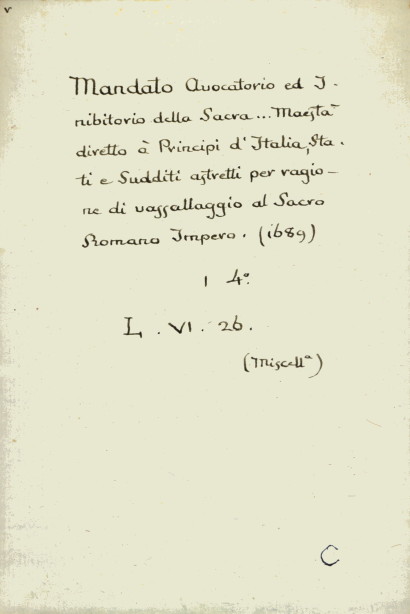 v
Mandato Avocatorio ed I-
nibitorio della Sacra... Maestà
diretto à Principi d'Italia, Sta-
ti e Sudditi astretti per ragio-
ne di vassallaggio al Sacro
Romano Impero. (1689)
1 4°
L. VI. 26.
(Miscellᵃ)
C